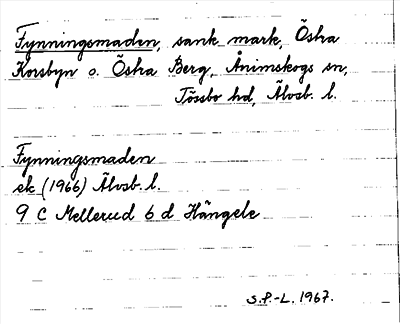 Fynningsmaden, sank mark, Östra
Korsbyn o. Östra Berg, Ånimskogs sn,
Tössbo hd, Älvsb. l.
Fynningsmaden
ek (1966) Älvsb. l.
9 C Mellerud 6 d Hängele
S.P.-L. 1967.